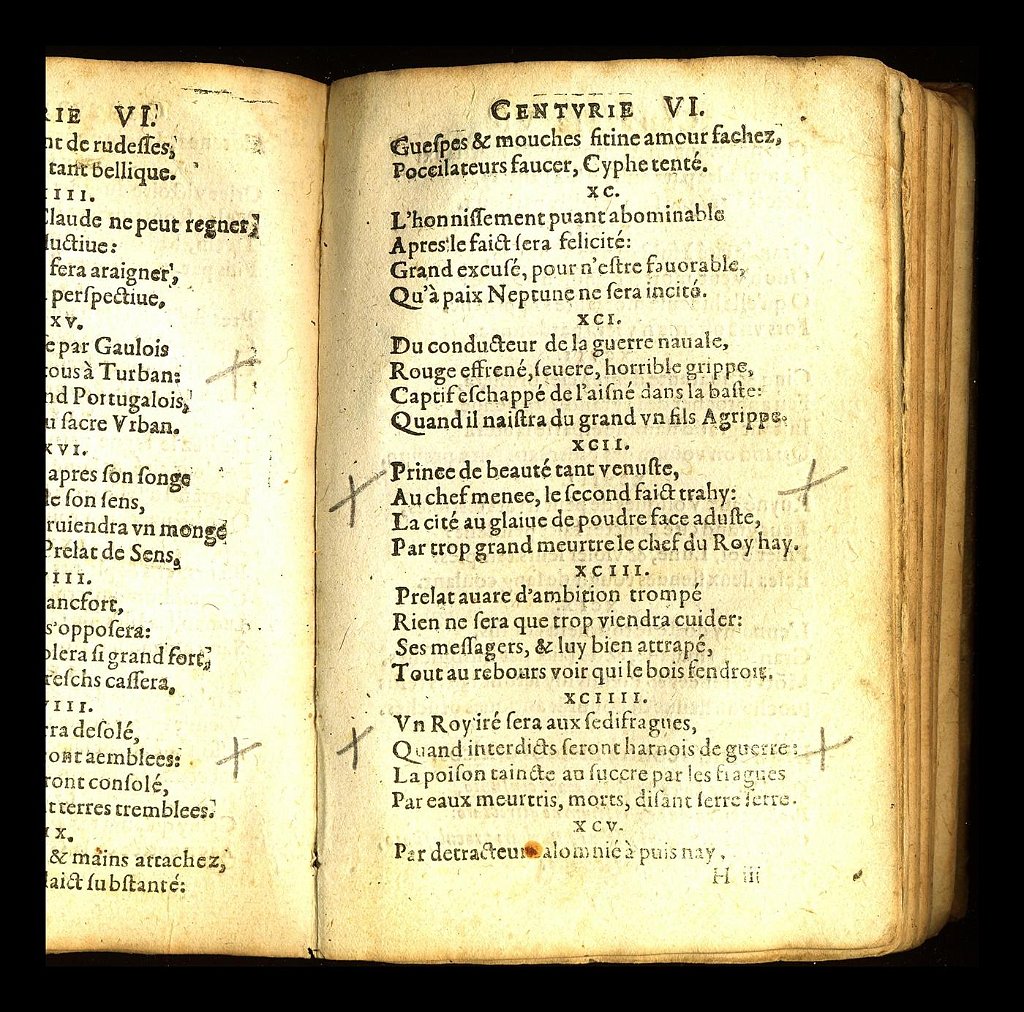 RIE VI.
nt de rudeſſes,
tant bellique.
IIII.
Claude ne peut regner,
luctiue:
ſera araigner,
perſpectiue,
XV.
e par Gaulois
tous à Turban:
nd Portugalois,
u ſacre Vrban.
XVI.
apres ſon ſonge
le ſon ſens,
ruiendra vn monge
Prelat de Sens,
VIII.
ancfort,
s'oppoſera:
blera ſi grand fort,
reſchs caſſera,
VIII.
rra deſolé,
ont aemblees:
ront conſolé,
t terres tremblees.
IX.
& mains attachez,
laict ſubſtanté:
CENTVRIE VI.
Gueſpes & mouches fitine amour fachez,
Poccilateurs faucer, Cyphe tenté.
XC.
L'honniſſement puant abominable
Apres le faict ſera felicité:
Grand excuſé, pour n'eſtre fauorable,
Qu'à paix Neptune ne ſera incité.
XCI.
Du conducteur de la guerre nauale,
Rouge effrené, ſeuere, horrible grippe,
Captif eſchappé de l'aiſné dans la baſte:
Quand il naiſtra du grand vn fils Agrippe.
XCII.
Prince de beauté tant venuſte,
Au chef menee, le ſecond faict trahy:
La cité au glaiue de poudre face aduſte,
Par trop grand meurtre le chef du Roy hay.
XCIII.
Prelat auare d'ambition trompé
Rien ne ſera que trop viendra cuider:
Ses meſſagers, & luy bien attrapé,
Tout au rebours voir qui le bois fendroit.
XCIIII.
Vn Roy iré ſera aux ſedifragues,
Quand interdicts ſeront harnois de guerre:
La poiſon taincte au ſuccre par les fragues
Par eaux meurtris, morts, diſant ſerre ſerre.
XCV.
Par detracteur alomnié à puis nay.
H iii